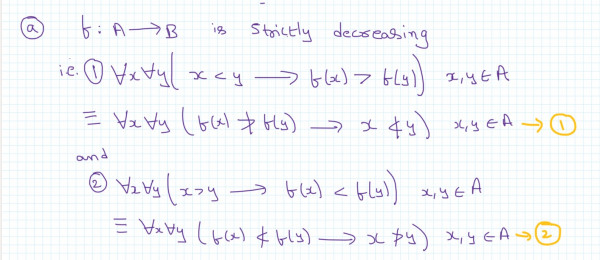 ⓐ f: A ⟶ B is strictly decreasing
i.e. ① ∀x∀y( x < y ⟶ f(x) > f(y)) x,y ∈ A
≡ ∀x∀y (f(x) ≯ f(y) ⟶ x ≮ y) x,y ∈ A → ①
and
② ∀x∀y (x>y ⟶ f(x) < f(y)) x,y ∈ A
≡ ∀x∀y (f(x) ≮ f(y) ⟶ x ≯ y) x,y ∈ A → ②